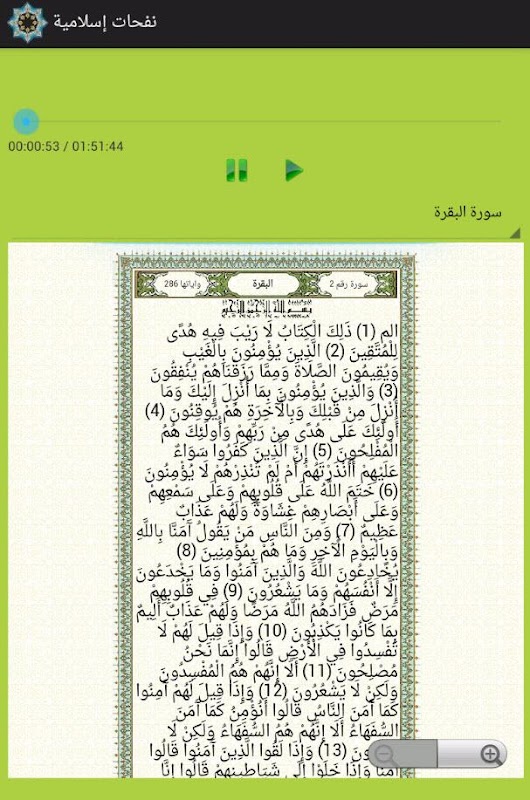 نفحات إسلامية
00:00:53 / 01:51:44
سورة البقرة
سورة رقم 2 البقرة واياتها 286
بسم الله الرحمن الرحيم
الم (1) ذَلِكَ الْكِتَابُ لَا رَيْبَ فِيهِ هُدًى
لِلْمُتَّقِينَ (2) الَّذِينَ يُؤْمِنُونَ بِالْغَيْبِ
وَيُقِيمُونَ الصَّلَاةَ وَمِمَّا رَزَقْنَاهُمْ يُنْفِقُونَ
(3) وَالَّذِينَ يُؤْمِنُونَ بِمَا أُنْزِلَ إِلَيْكَ وَمَا
أُنْزِلَ مِنْ قَبْلِكَ وَبِالْآَخِرَةِ هُمْ يُوقِنُونَ (4)
أُولَئِكَ عَلَى هُدًى مِنْ رَبِّهِمْ وَأُولَئِكَ هُمُ
الْمُفْلِحُونَ (5) إِنَّ الَّذِينَ كَفَرُوا سَوَاءٌ
عَلَيْهِمْ أَأَنْذَرْتَهُمْ أَمْ لَمْ تُنْذِرْهُمْ لَا يُؤْمِنُونَ
(6) خَتَمَ اللَّهُ عَلَى قُلُوبِهِمْ وَعَلَى سَمْعِهِمْ
وَعَلَى أَبْصَارِهِمْ غِشَاوَةٌ وَلَهُمْ عَذَابٌ
عَظِيمٌ (7) وَمِنَ النَّاسِ مَنْ يَقُولُ آَمَنَّا بِاللَّهِ
وَبِالْيَوْمِ الْآَخِرِ وَمَا هُمْ بِمُؤْمِنِينَ (8)
يُخَادِعُونَ اللَّهَ وَالَّذِينَ آَمَنُوا وَمَا يَخْدَعُونَ
إِلَّا أَنْفُسَهُمْ وَمَا يَشْعُرُونَ (9) فِي قُلُوبِهِمْ
مَرَضٌ فَزَادَهُمُ اللَّهُ مَرَضًا وَلَهُمْ عَذَابٌ أَلِيمٌ
بِمَا كَانُوا يَكْذِبُونَ (10) وَإِذَا قِيلَ لَهُمْ لَا
تُفْسِدُوا فِي الْأَرْضِ قَالُوا إِنَّمَا نَحْنُ
مُصْلِحُونَ (11) أَلَا إِنَّهُمْ هُمُ الْمُفْسِدُونَ
وَلَكِنْ لَا يَشْعُرُونَ (12) وَإِذَا قِيلَ لَهُمْ آَمِنُوا
كَمَا آَمَنَ النَّاسُ قَالُوا أَنُؤْمِنُ كَمَا آَمَنَ
السُّفَهَاءُ أَلَا إِنَّهُمْ هُمُ السُّفَهَاءُ وَلَكِنْ لَا
(13) وَإِذَا لَقُوا الَّذِينَ آَمَنُوا قَالُوا
آَمَنَّا وَإِذَا خَلَوْا إِلَى شَيَاطِينِهِمْ قَالُوا إِنَّا